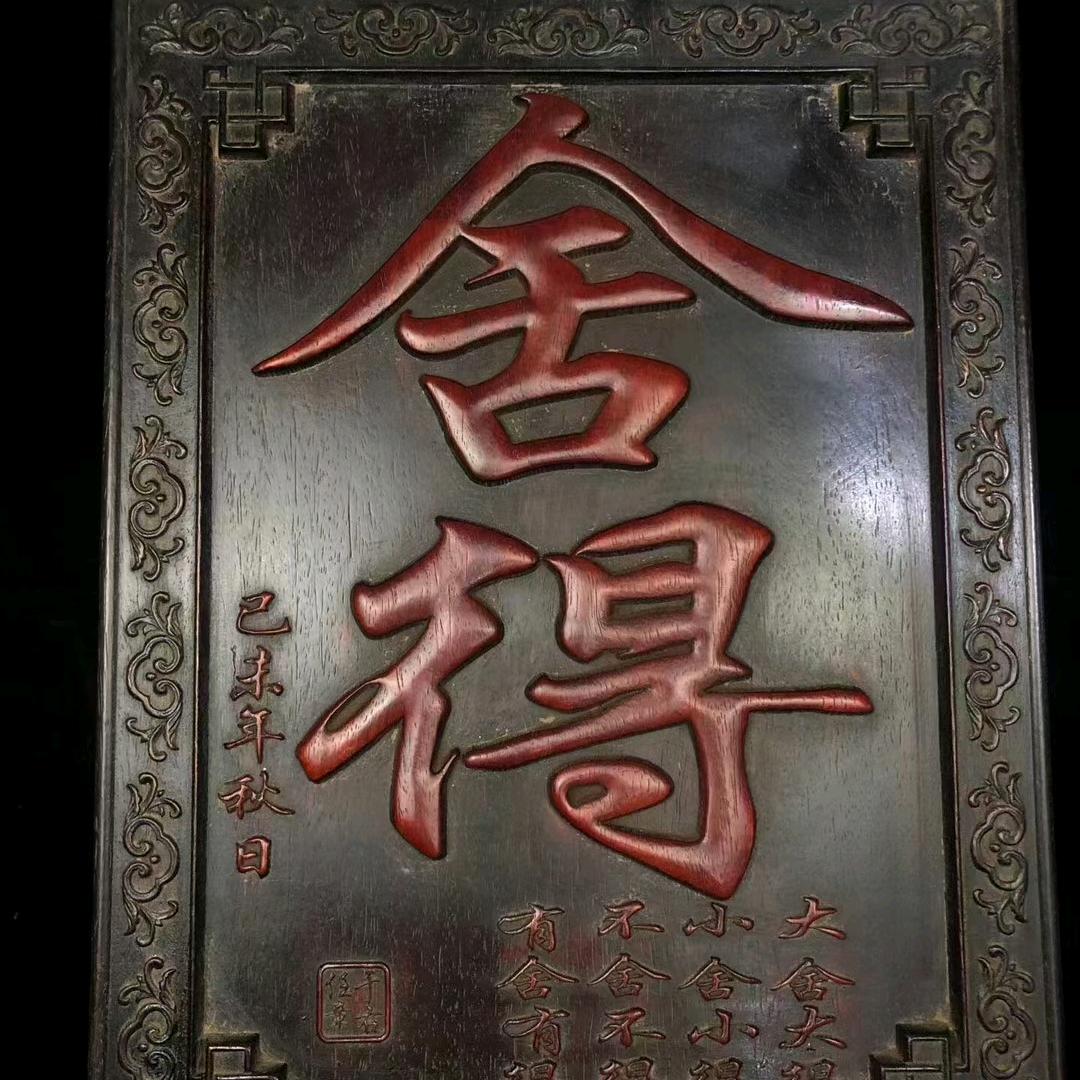 舍得
大舍大得
小舍小得
不舍不得
有舍有得
己未年秋日
于右任章